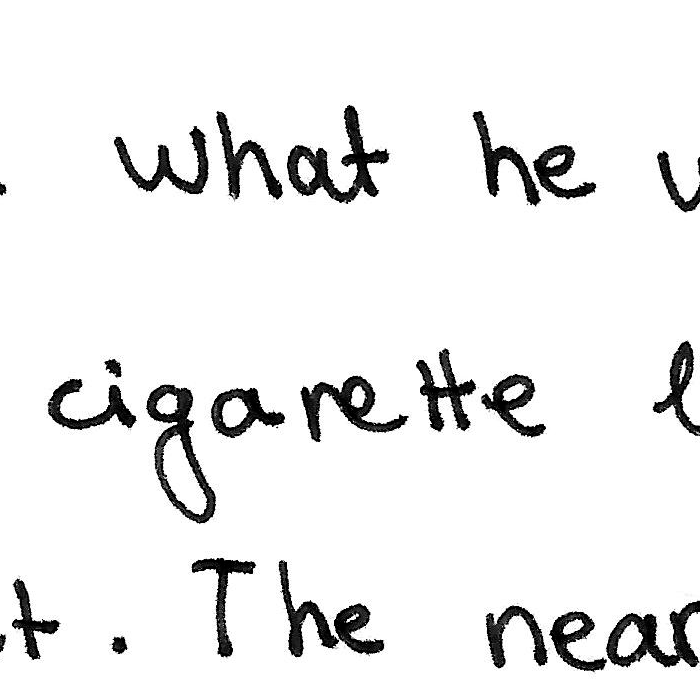 . What he
cigarette
. The near